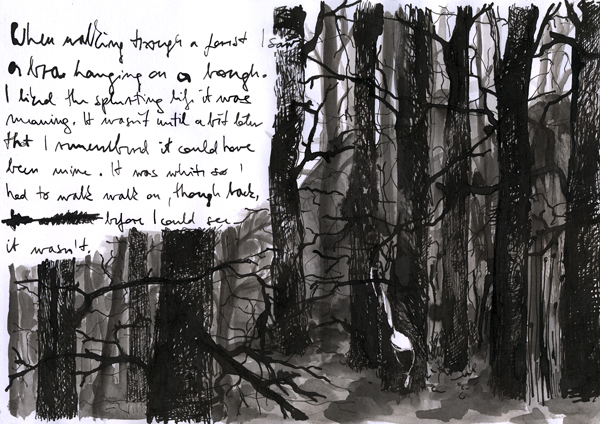 When walking through a forest I saw
a bra hanging on a bough.
I liked the splurting life it was
meaning. It wasn't until a bit later
that I remembered it could have
been mine. It was white so I
had to walk walk on, though back,
before I could see
it wasn't.